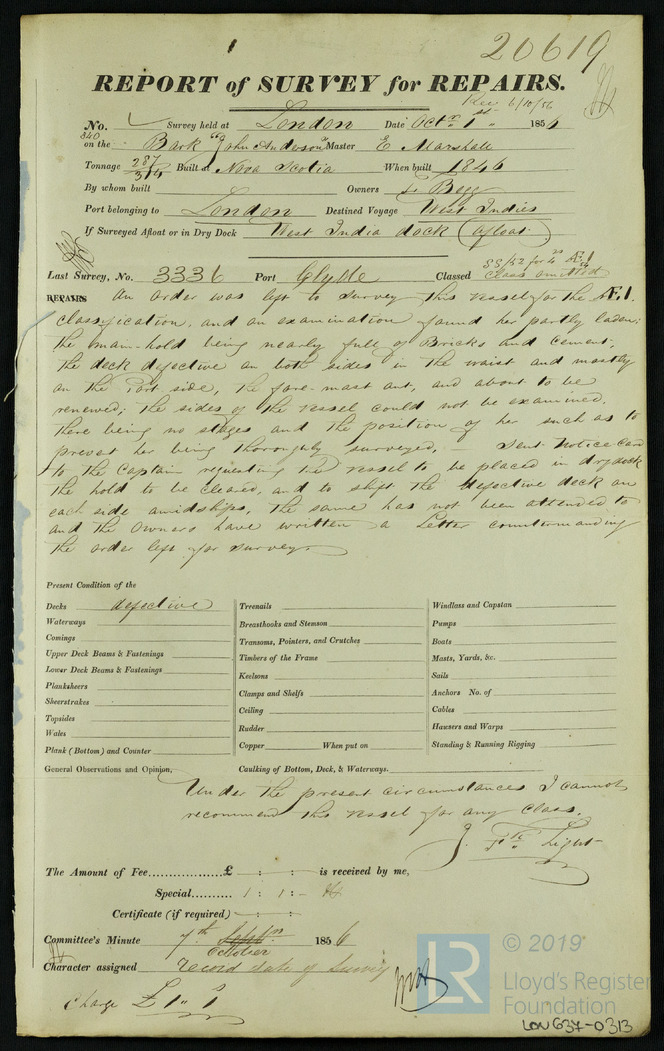 20619
REPORT of SURVEY for REPAIRS.
Rec 6/10/56
No. Survey held at London Date Octr. 1st 1856
840
on the Bark "John Anderson" Master E Marshall
Tonnage 287/314 Built at Nova Scotia When built 1846
By whom built Owners Begg
Port belonging to London Destined Voyage West Indies
If Surveyed Afloat or in Dry Dock West India dock (afloat)
SS/52 for 4 Æ.1
Last Survey, No. 3336 Port Clyde Classed Class omitted
REPAIRS An order was left to survey this vessel for the Æ.1.
classification, and on examination found her partly laden;
the main-hold being nearly full of Bricks and cement,
the deck defective on both sides in the waist and mostly
on the Port side, the fore-mast out, and about to be
renewed; the sides of the vessel could not be examined,
there being no stages and the position of her such as to
prevent her being thoroughly surveyed, – Sent Notice Card
to the Captain requesting the vessel to be placed in dry dock
the hold to be cleared, and to shift the defective deck on
each side amidships, the same has not been attended to
and the Owners have written a Letter countermanding
the order left for survey.
Present Condition of the
Decks defective
Waterways
Comings
Upper Deck Beams & Fastenings
Lower Deck Beams & Fastenings
Planksheers
Sheerstrakes
Topsides
Wales
Plank (Bottom) and Counter
Treenails
Breasthooks and Stemson
Transoms, Pointers, and Crutches
Timbers of the Frame
Keelsons
Clamps and Shelfs
Ceiling
Rudder
Copper When put on
Windlass and Capstan
Pumps
Boats
Masts, Yards, &c.
Sails
Anchors No. of
Cables
Hawsers and Warps
Standing & Running Rigging
General Observations and Opinion, Caulking of Bottom, Deck, & Waterways.
Under the present circumstances I cannot
recommend this vessel for any Class.
J. Light
The Amount of Fee.................£ : : is received by me,
Special.......... 1 : 1 : -
Certificate (if required) : :
Committee's Minute 7th Septr. 1856
October
Character assigned record date of Survey
Charge £1" 1
LR © 2019
Lloyd's Register
Foundation
LON637-0313